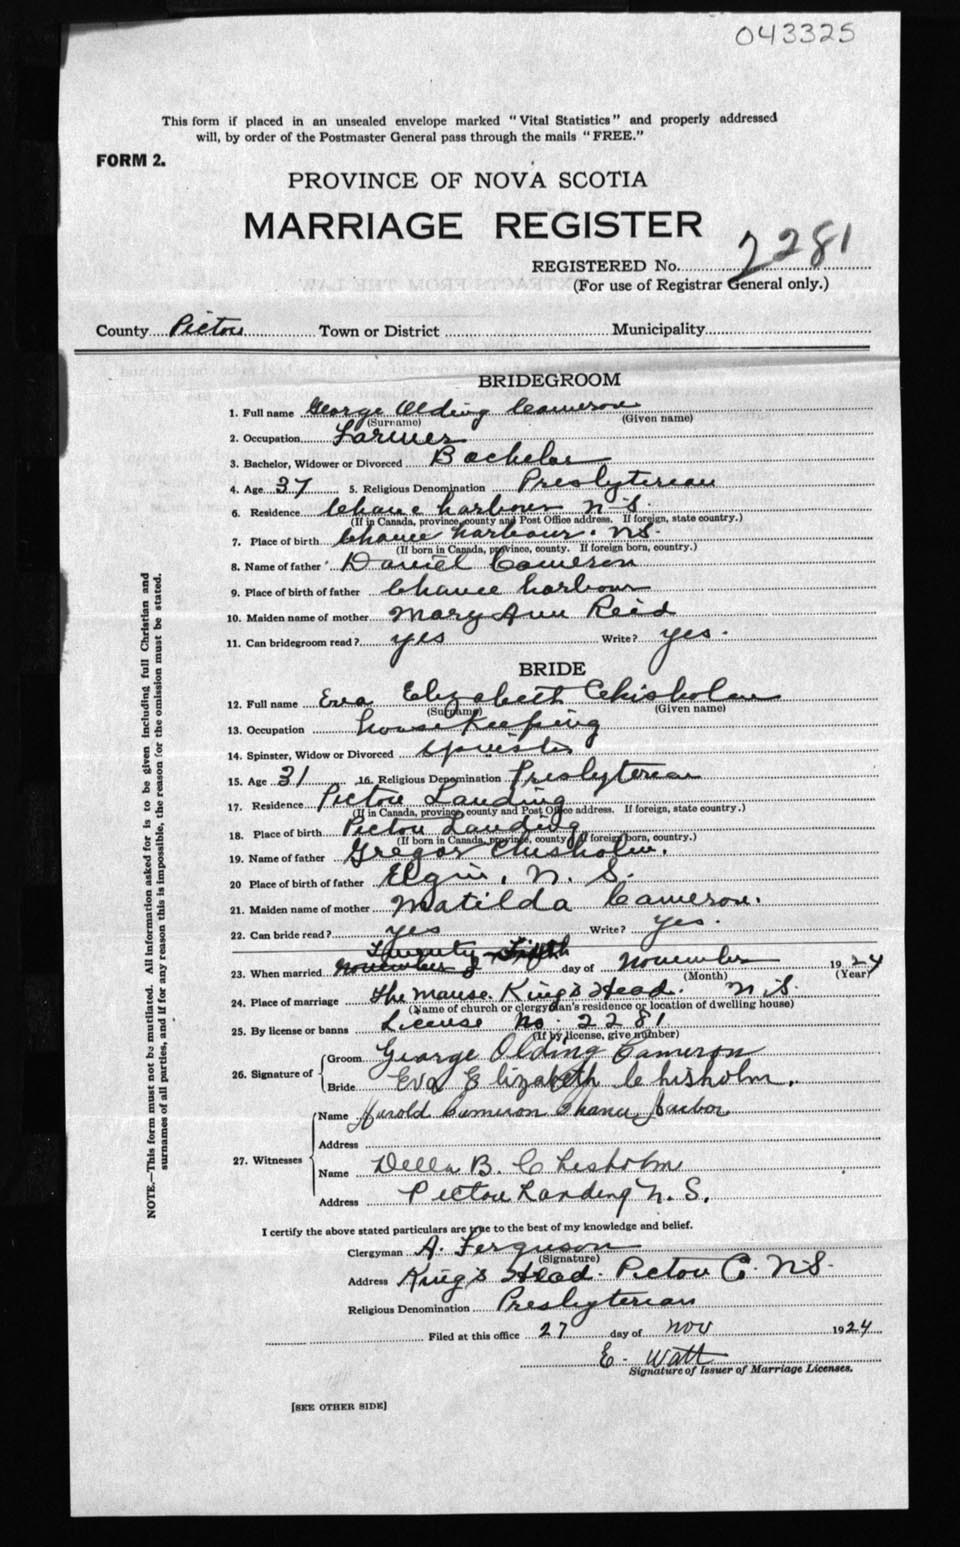 043325
This form if placed in an unsealed envelope marked "Vital Statistics" and properly addressed
will, by order of the Postmaster General pass through the mails "FREE."
FORM 2.
PROVINCE OF NOVA SCOTIA
MARRIAGE REGISTER
REGISTERED No. 2281
(For use of Registrar General only.)
County Pictou Town or District Municipality
BRIDEGROOM
1. Full name George Olding Cameron
(Surname) (Given name)
2. Occupation Farmer
3. Bachelor, Widower or Divorced Bachelor
4. Age 37 5. Religious Denomination Presbyterian
6. Residence Chance harbour N.S.
(If in Canada, province, county and Post Office address. If foreign, state country.)
7. Place of birth Chance harbour. NS.
(If born in Canada, province, county. If foreign born, country.)
8. Name of father Daniel Cameron
9. Place of birth of father Chance harbour
10. Maiden name of mother Mary Ann Reid
11. Can bridegroom read? yes Write? yes.
BRIDE
12. Full name Eva Elizabeth Chisholm
(Surname) (Given name)
13. Occupation housekeeping
14. Spinster, Widow or Divorced spinster
15. Age 31 16. Religious Denomination Presbyterian
17. Residence Pictou Landing
(If in Canada, province, county and Post Office address. If foreign, state country.)
18. Place of birth Pictou Landing
(If born in Canada, province, county. If foreign born, country.)
19. Name of father Gregor Chisholm.
20 Place of birth of father Elgin, N. S.
21. Maiden name of mother Matilda Cameron.
22. Can bride read? yes Write? yes.
Twenty Fifth
23. When married November day of November 1924
(Month) (Year)
24. Place of marriage the manse King's Head. N.S.
(Name of church or clergyman's residence or location of dwelling house)
25. By license or banns License No. 2281
(If by license, give number)
26. Signature of
Groom George Olding Cameron
Bride Eva Elizabeth Chisholm.
27. Witnesses
Name Harold Cameron Chance Harbor
Address
Name Della B. Chisholm
Address Pictou Landing N. S.
I certify the above stated particulars are true to the best of my knowledge and belief.
Clergyman A. Ferguson
(Signature)
Address King's Head. Pictou C. N.S.
Religious Denomination Presbyterian
Filed at this office 27 day of Nov 1924
E. Watt
Signature of Issuer of Marriage Licenses.
[SEE OTHER SIDE]
NOTE.—This form must not be mutilated. All information asked for is to be given including full Christian and
surnames of all parties, and if for any reason this is impossible, the reason for the omission must be stated.